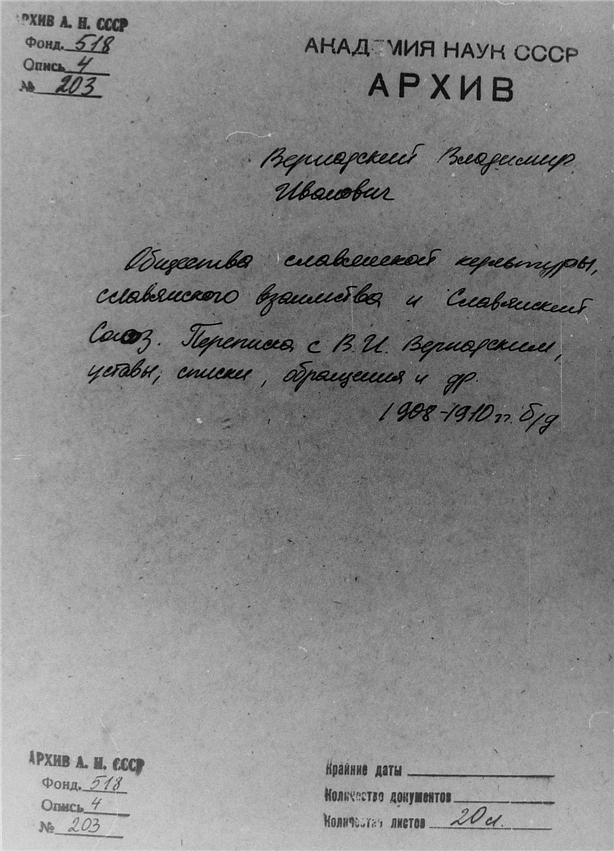 АРХИВ А. Н. СССР
Фонд. 518
Опись 4
№ 203
АКАДЕМИЯ НАУК СССР
АРХИВ
Вернадский Владимир
Иванович
Общества славянской культуры,
славянского взаимства и Славянский
Союз. Переписка с В.И. Вернадским,
уставы, списки, обращения и др.
1908-1910 гг. б/д
АРХИВ А. Н. СССР
Фонд. 518
Опись 4
№ 203
Крайние даты
Количество документов
Количество листов 20 л.